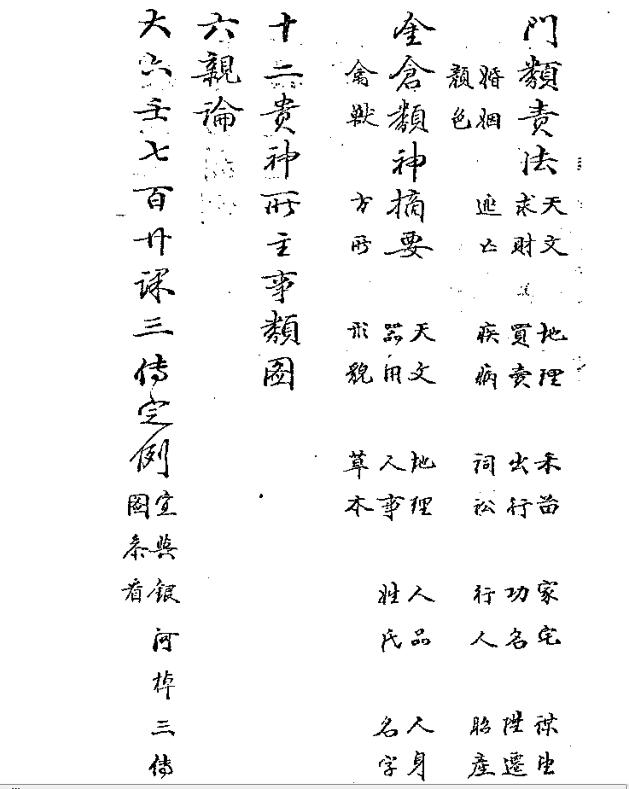 門類責法
天文 地理 禾苗 家宅 謀生
求財 買賣 出行 功名 陞遷
婚姻 逃亡 疾病 詞訟 行人 胎產
顏色
金倉類神摘要
天文 地理 人品 人身
器用 人事 姓氏 名字
禽獸 方所 形貌 草木
十二貴神所主事類圖
六親論
大六壬七百廿課三傳定例
宜與銀河棹三傳
圖叅看